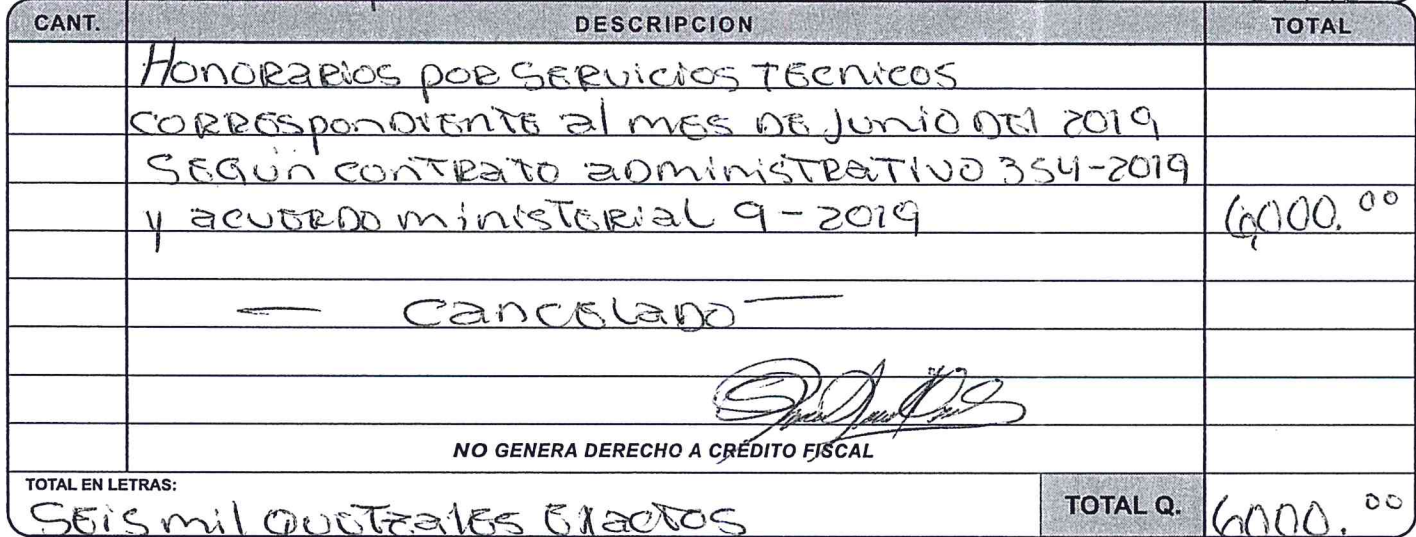 CANT. DESCRIPCION TOTAL
Honorarios por servicios técnicos
correspondiente al mes de junio del 2019
según contrato administrativo 354-2019
y acuerdo ministerial 9-2019 6,000.00
— cancelado —
NO GENERA DERECHO A CRÉDITO FISCAL
TOTAL EN LETRAS:
Seis mil quetzales exactos TOTAL Q. 6,000.00